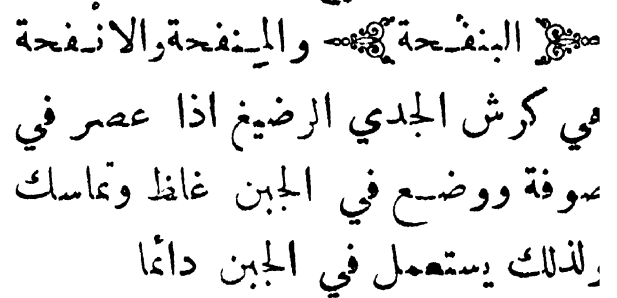 البنفْـحة والمِـنفحة والانْـفحة
هي كرش الجدي الرضيغ اذا عصر في
صوفة ووضـع في الجبن غاظ وتماسك
ولذلك يستعمل في الجبن دائما